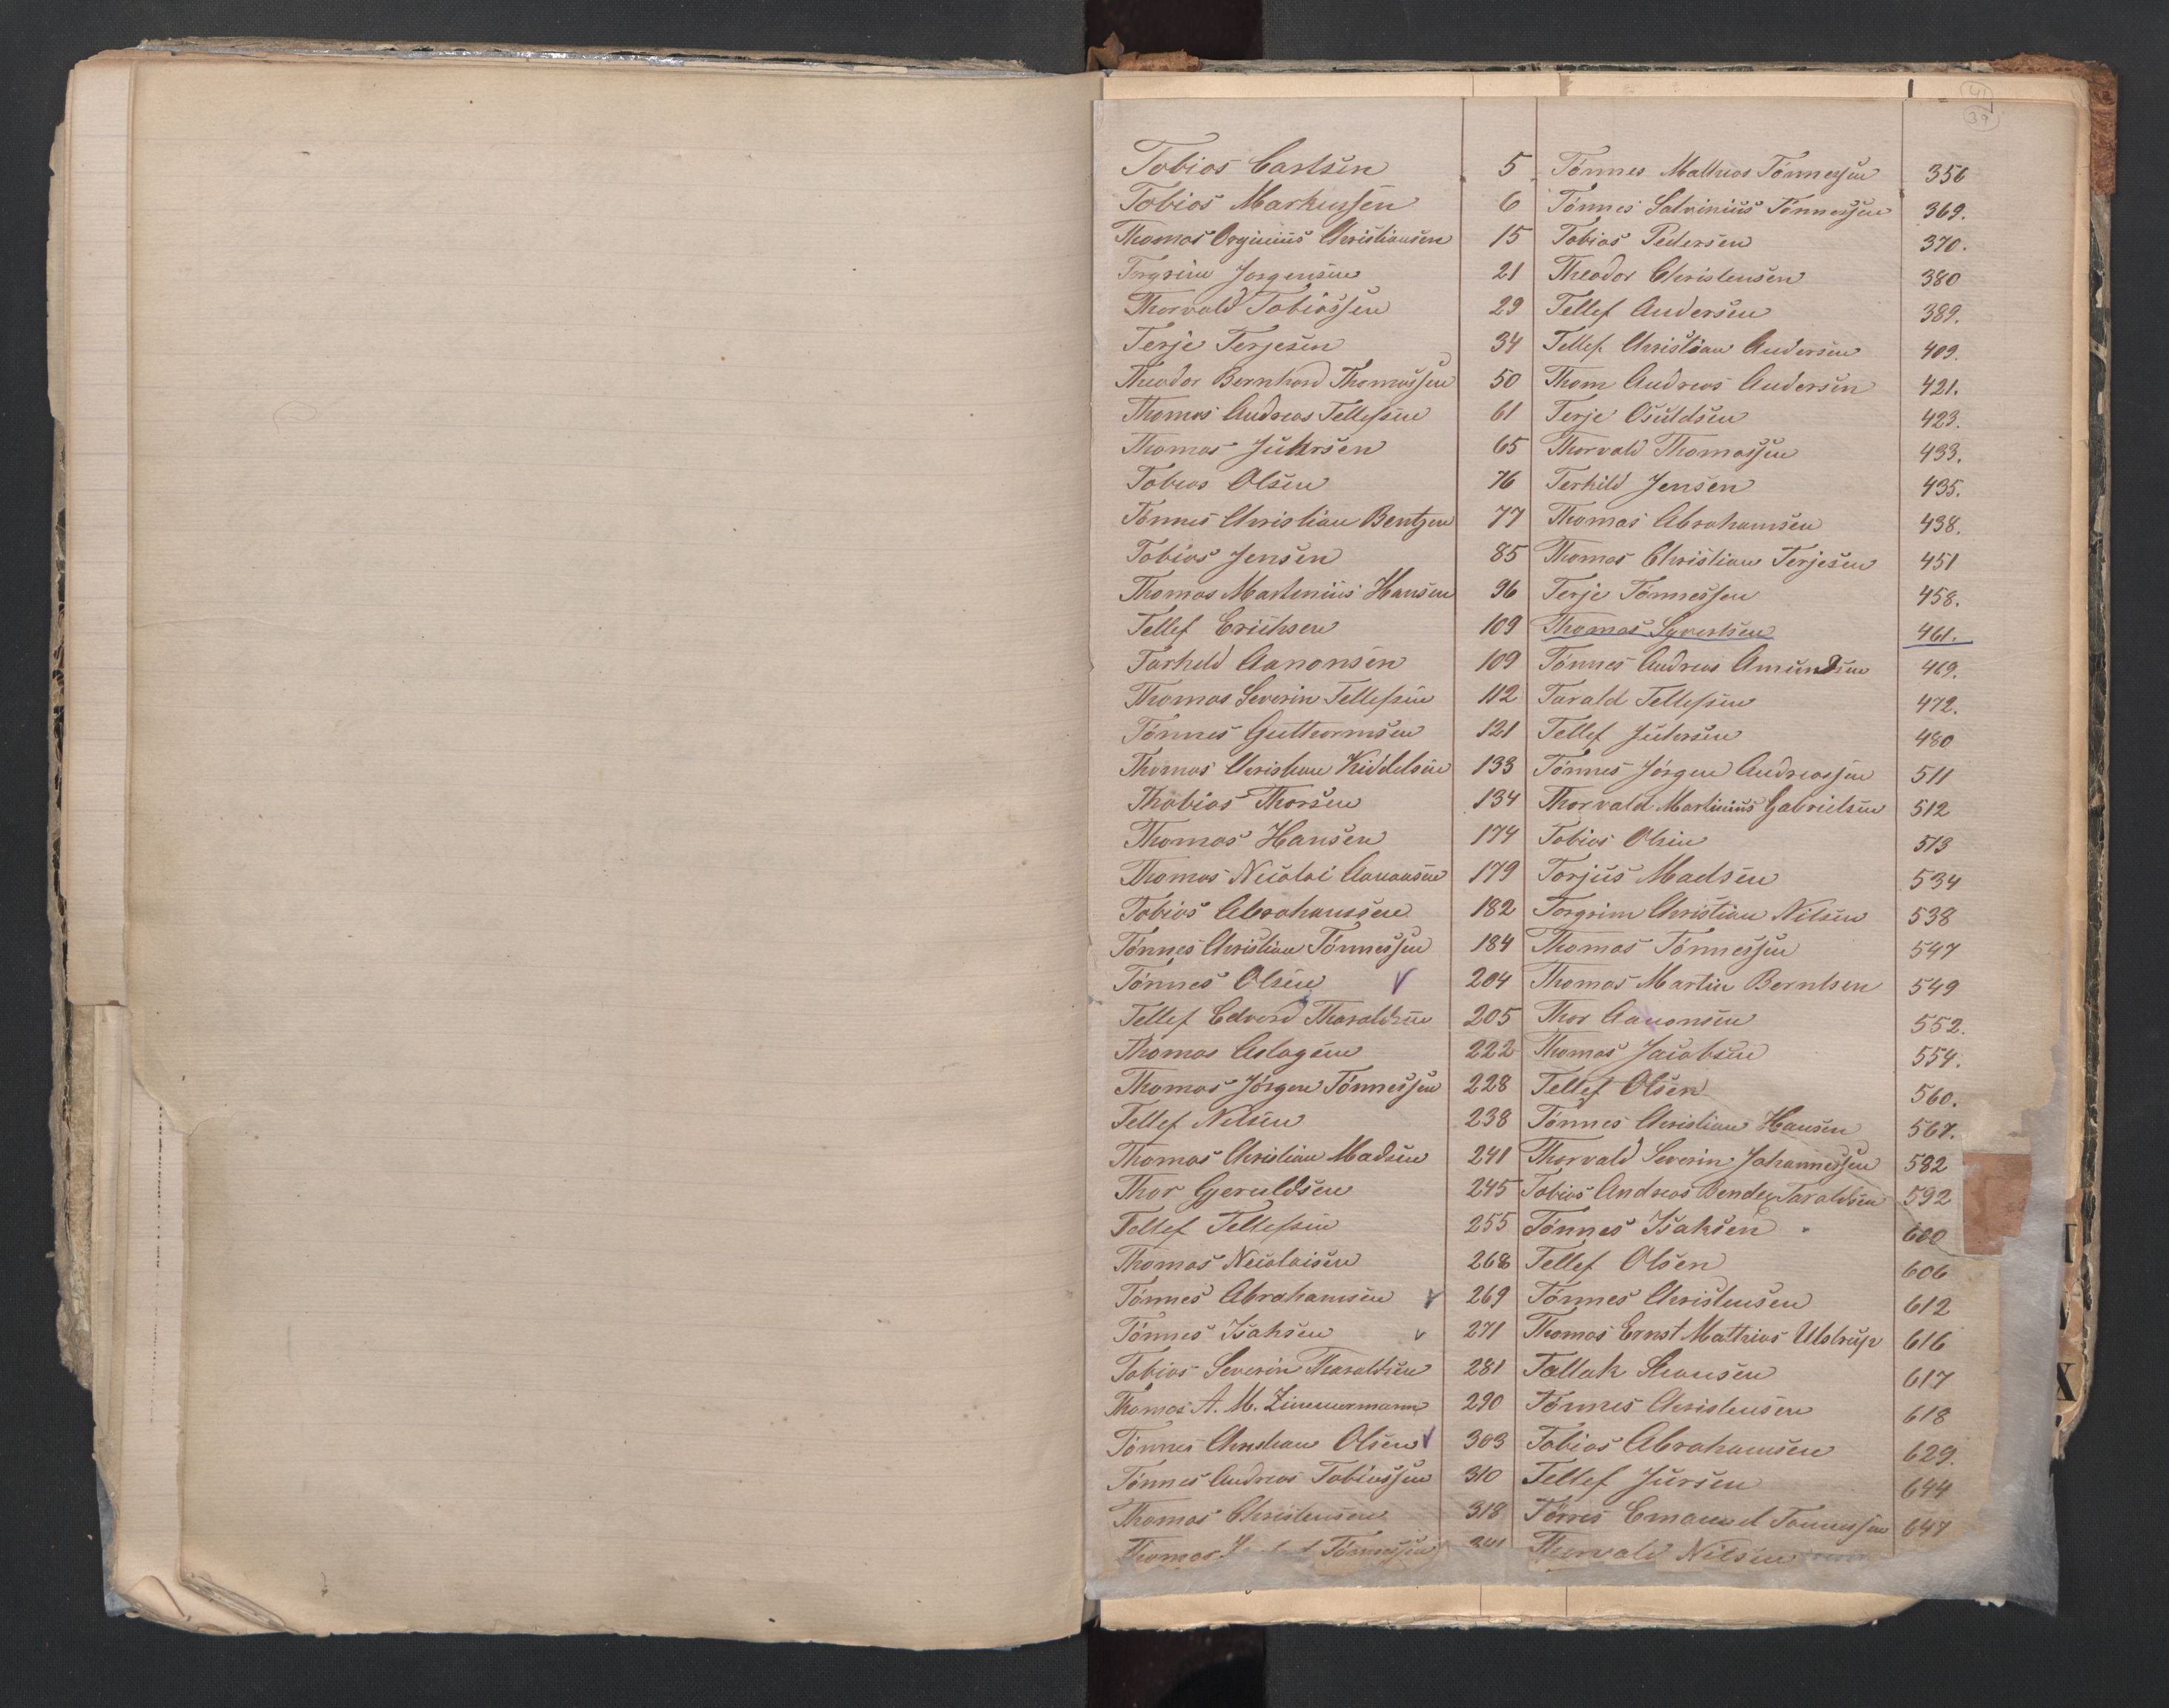 41
39
Tobias Carlsen 5
Tobias Markussen 6
Thomas Orginius Christiansen 15
Torgrim Jorgensen 21
Thorvald Tobiassen 29
Terje Terjesen 34
Theodor Bernhard Thomassen 50
Thomas Andreas Tellefsen 61
Thomas Juhrsen 65
Tobias Olsen 76
Tönnes Christian Bentzen 77
Tobias Jensen 85
Thomas Martinius Hansen 96
Tellef Erichsen 109
Tarheld Aanonsen 109
Thomas Severin Tellefsen 112
Tönnes Guttormsen 121
Thomas Christian Kiddelsen 133
Thobias Thorsen 134
Thomas Hansen 174
Thomas Nicolai Aanonsen 179
Tobias Abrahamsen 182
Tönnes Christian Tönnessen 184
Tönnes Olsen V 204
Tellef Edvard Tharaldsen 205
Thomas Aslagsen 222
Thomas Jörgen Tönnessen 228
Tellef Nilsen 238
Thomas Christian Madsen 241
Thor Gjeruldsen 245
Tellef Tellefsen 255
Thomas Nicolaisen 268
Tönnes Abrahamsen V 269
Tönnes Isaksen v 271
Tobias Severin Tharaldsen 281
Thomas A. M. Zimmermann 290
Tönnes Christian Olsen V 303
Tönnes Andreas Tobiassen 310
Thomas Christensen 318
Thomas Tönnessen 341
Tönnes Mathias Tönnessen 356
Tönnes Salvinius Tönnessen 369.
Tobias Pedersen 370.
Theodor Christensen 380
Tellef Andersen 389.
Tellef Christian Andersen 409.
Thom Andreas Andersen 421.
Terje Osuldsen 423.
Thorvald Thomassen 433.
Terkild Jensen 435.
Thomas Abrahamsen 438.
Thomas Christian Terjesen 451
Terje Tönnessen 458.
Thomas Syvertsen 461.
Tönnes Andreas Amundsen 469.
Tarald Tellefsen 472.
Tellef Juhrsen 480
Tönnes Jörgen Andreassen 511
Thorvald Martinius Gabrielsen 512
Tobias Olsen 513
Torjus Madsen 534
Torgrim Christian Nilsen 538
Thomas Tönnessen 547
Thomas Martin Berntsen 549
Thor Aanonsen 552.
Thomas Jacobsen 554.
Tellef Olsen 560.
Tönnes Christian Hansen 567.
Thorvald Severin Johannessen 582
Tobias Andreas Bendex Taraldsen 592
Tönnes Isaksen 600
Tellef Olsen 606
Tönnes Christensen 612
Thomas Ernst Mathias Ulstrup 616
Tallak 617
Tönnes Christensen 618
Tobias Abrahamsen 629.
Tellef Jursen 644
Törres Emanuel Tönnessen 647
Thorvald Nilsen